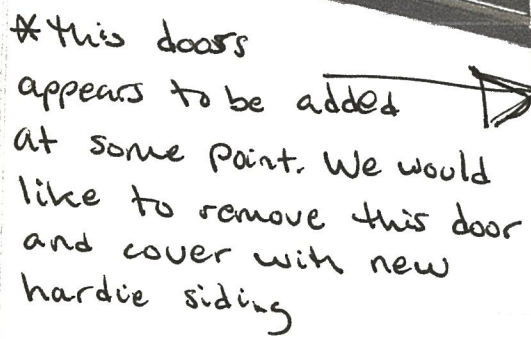 *this doors
appears to be added
at some point. We would
like to remove this door
and cover with new
hardie siding